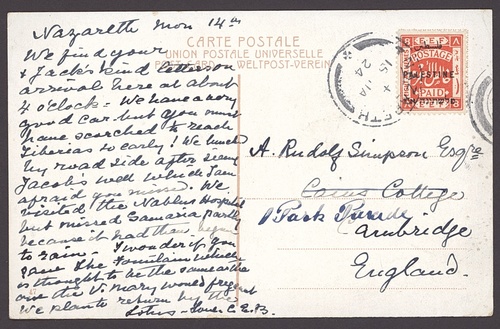 Nazareth Mon 14th
We find your
& Jack's kind letters on
arrival here at about
4 o'clock - We have a very
good car but you must
have scorched to reach
Tiberias so early! We lunched
by road side after seeing
Jacob's well which I am
afraid you missed. We
visited the Nablus Hospital
but missed Samaria partly
because it had then begun
to rain - I wonder if you
saw the Fountain which
is thought to be the same as the
one the V. Mary would frequent
We plan to return by the
Lotus - Love C.E.B.
CARTE POSTALE
UNION POSTALE UNIVERSELLE
POSTCARD WELTPOST-VEREIN
E.E.F.
POSTAGE
PALESTINE
PAID
NAZARETH
15 JA
24
A. Rudolf Simpson Esqre
Caius College
1 Park Parade
Cambridge
England.
47